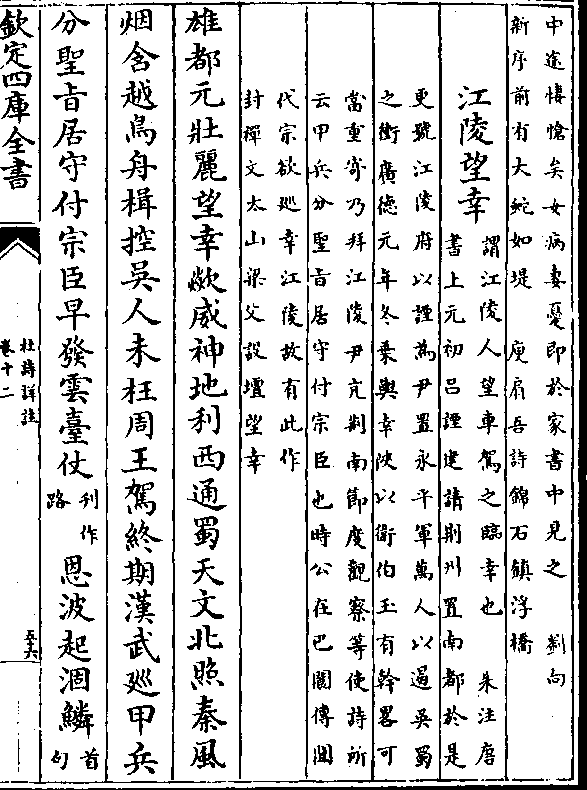 中途悽愴矣女病妻憂即於家書中見之　劉向
新序前有大蛇如堤　庾肩吾詩錦石鎮浮橋
江陵望幸
謂江陵人望車駕之臨幸也　朱注唐
書上元初呂諲建請荆州置南都於是
更號江陵府以諲為尹置永平軍萬人以遏吳蜀
之衝廣德元年冬乗輿幸陜以衛伯玉有幹畧可
當重寄乃拜江陵尹充荆南節度觀察等使詩所
云甲兵分聖旨居守付宗臣也時公在巴閬傳聞
代宗欲廵幸江陵故有此作
封禪文太山梁父設壇望幸
雄都元壯麗望幸歘威神地利西通蜀天文北照秦風
烟含越鳥舟楫控吳人未枉周王駕終期漢武廵甲兵
分聖旨居守付宗臣早發雲臺仗刋作路恩波起涸鱗首句
欽定四庫全書
杜詩詳註
卷十二
五六